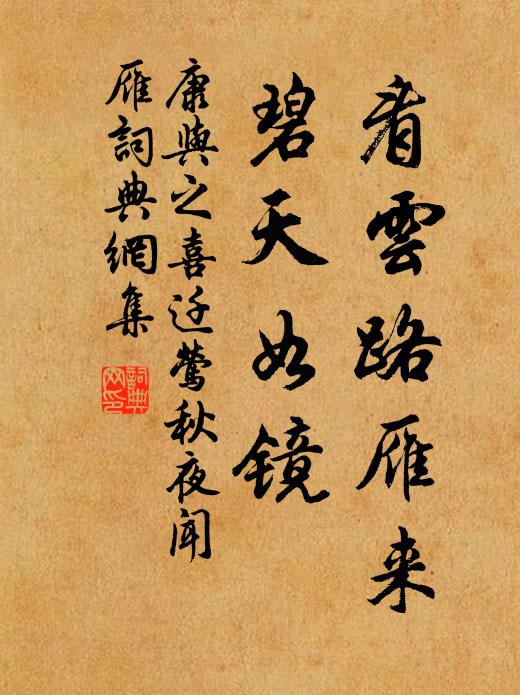 看雲路雁来
碧天如镜
康與之喜迁鶯秋夜闻
雁詞典網集
詞典网印